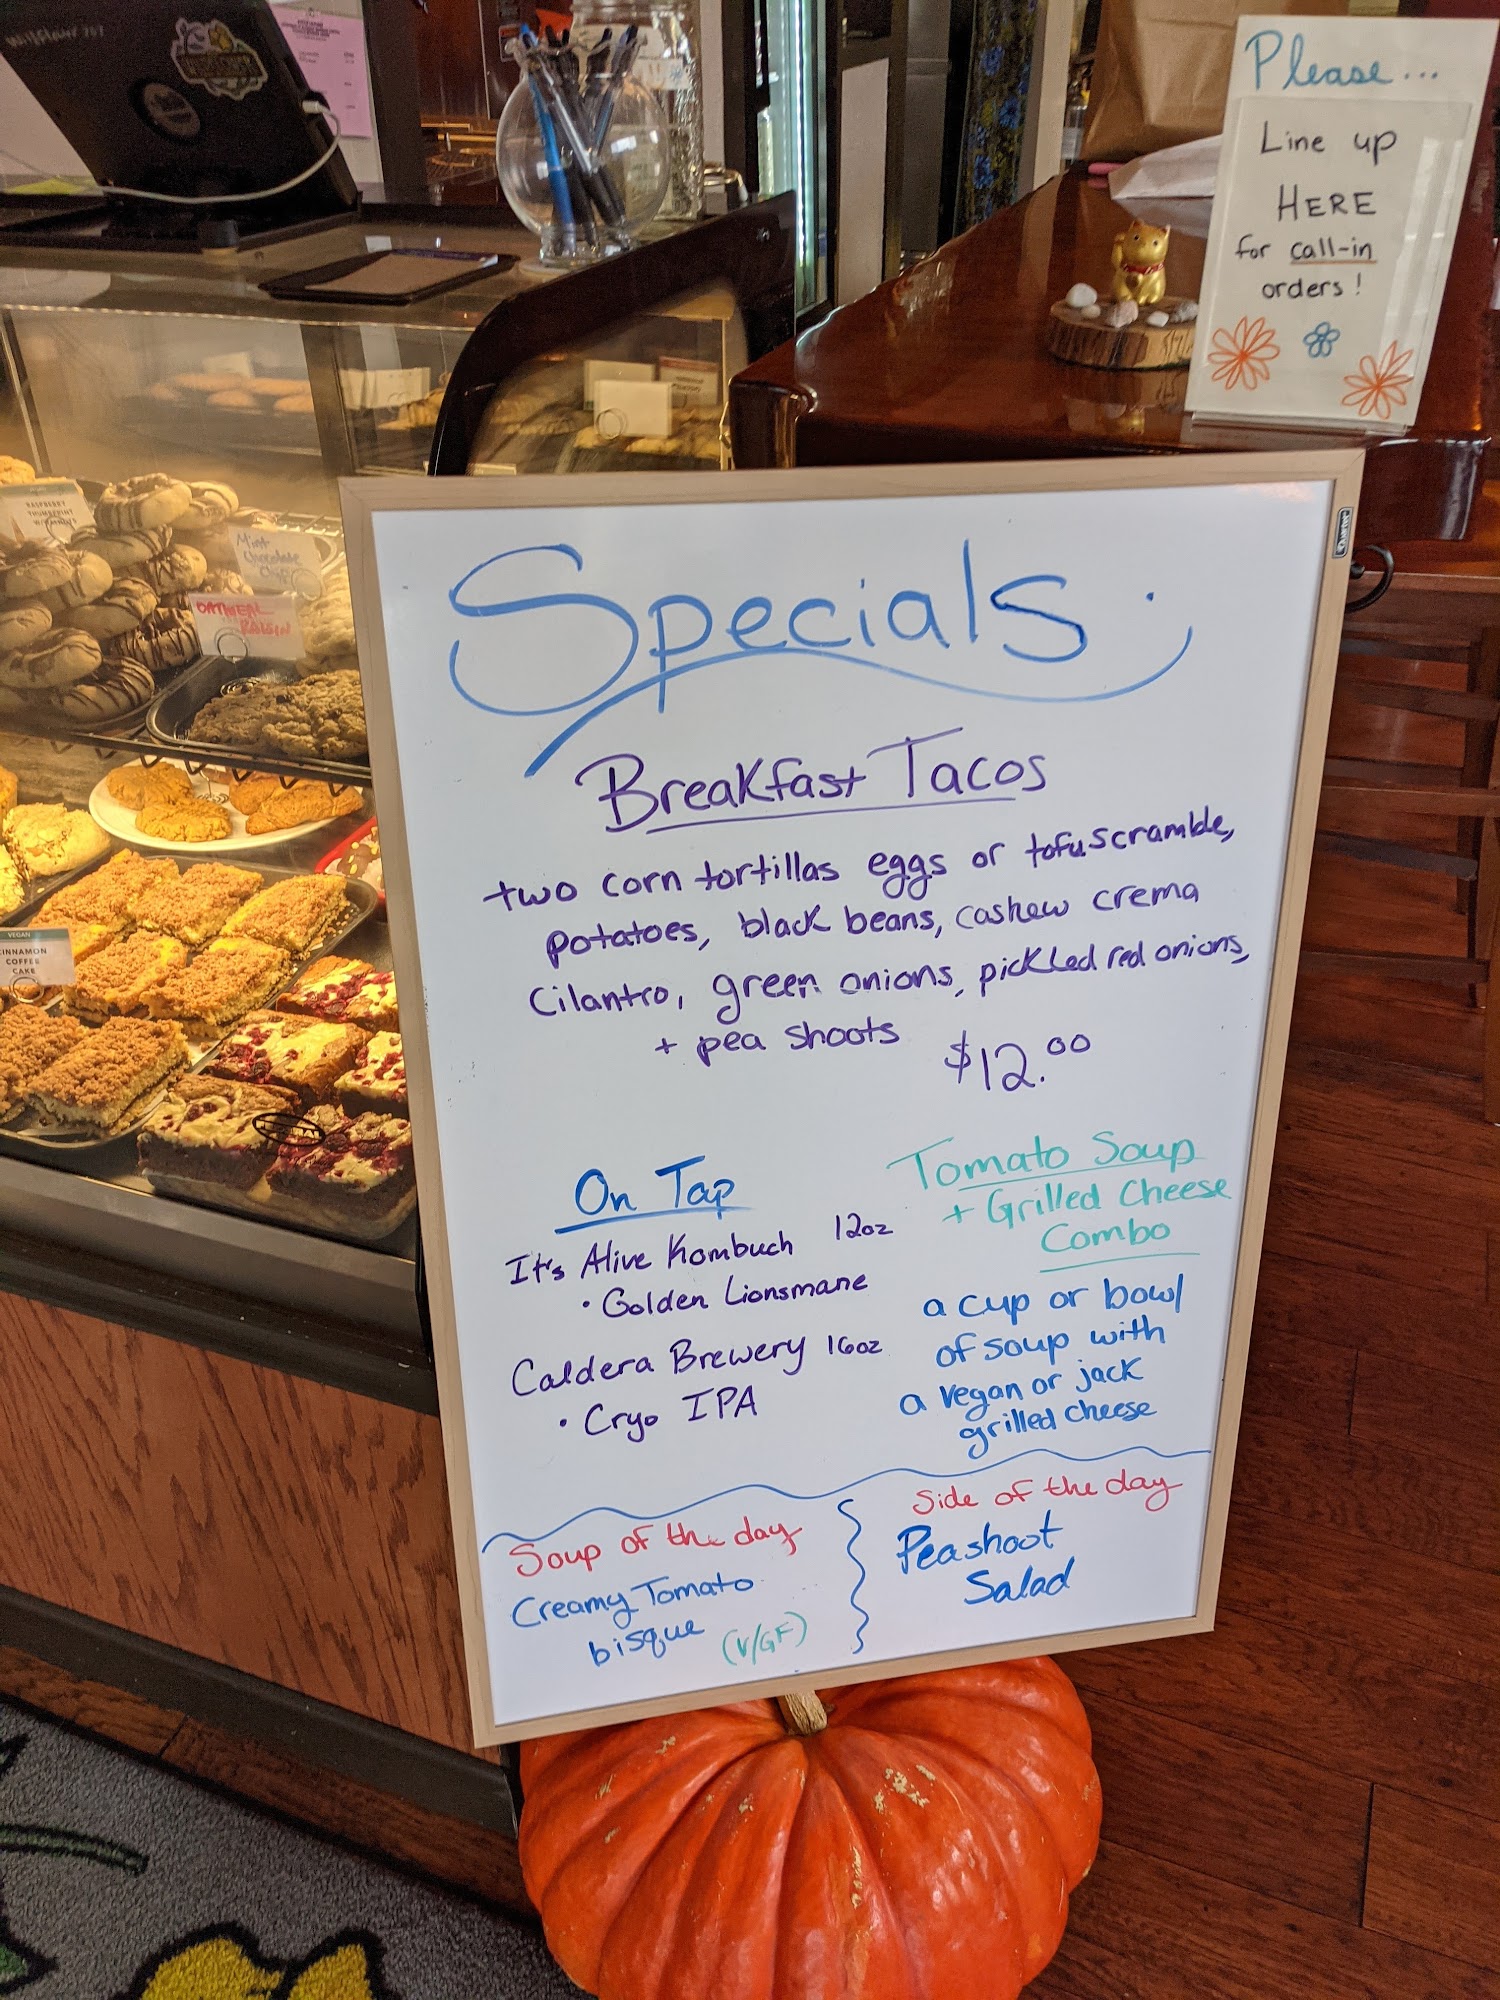 Please...
Line up
HERE
for call-in
orders!
RASPBERRY
THUMBPRINT
Mint
Chocolate
Chip
OATMEAL
RAISIN
VEGAN
CINNAMON
COFFEE
CAKE
Specials.
Breakfast Tacos
two corn tortillas eggs or tofu scramble,
potatoes, black beans, cashew crema
cilantro, green onions, pickled red onions,
+ pea shoots $12.00
On Tap
It's Alive Kombuch 12oz
• Golden Lionsmane
Caldera Brewery 16oz
• Cryo IPA
Tomato Soup
+ Grilled Cheese
Combo
a cup or bowl
of soup with
a vegan or jack
grilled cheese
Soup of the day
Creamy Tomato
bisque (V/GF)
Side of the day
Peashoot
Salad